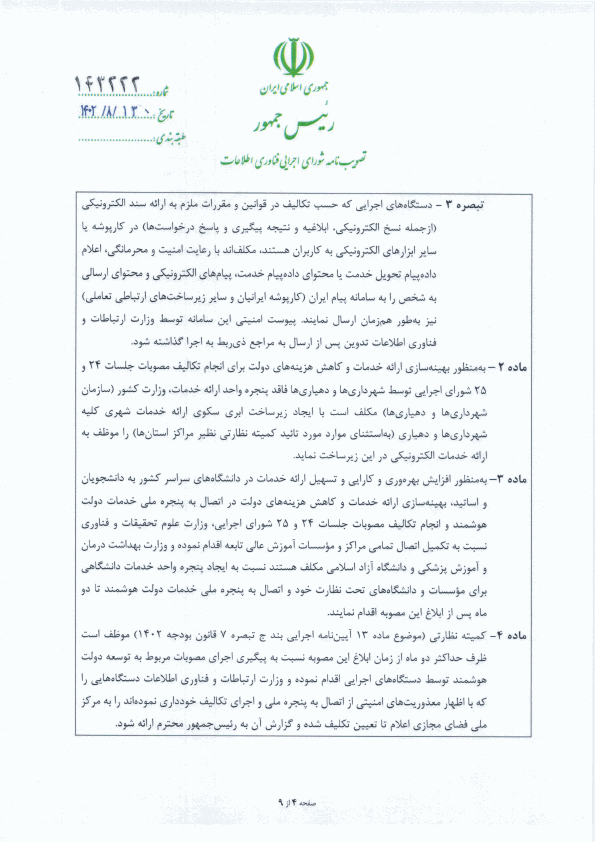 جمهوری اسلامی ایران
رئیس جمهور
تصویب نامه شورای اجرایی فناوری اطلاعات
شماره: ۱۴۳۲۲۲
تاریخ: ۱۴۰۲/۸/۱۳۰
طبقه بندی:
تبصره ۳ - دستگاه‌های اجرایی که حسب تکالیف در قوانین و مقررات ملزم به ارائه سند الکترونیکی
(ازجمله نسخ الکترونیکی، ابلاغیه و نتیجه پیگیری و پاسخ درخواست‌ها) در کارپوشه یا
سایر ابزارهای الکترونیکی به کاربران هستند، مکلف‌اند با رعایت امنیت و محرمانگی، اعلام
داده‌پیام تحویل خدمت یا محتوای داده‌پیام خدمت، پیام‌های الکترونیکی و محتوای ارسالی
به شخص را به سامانه پیام ایران (کارپوشه ایرانیان و سایر زیرساخت‌های ارتباطی تعاملی)
نیز به‌طور هم‌زمان ارسال نمایند. پیوست امنیتی این سامانه توسط وزارت ارتباطات و
فناوری اطلاعات تدوین پس از ارسال به مراجع ذی‌ربط به اجرا گذاشته شود.
ماده ۲ – به‌منظور بهینه‌سازی ارائه خدمات و کاهش هزینه‌های دولت برای انجام تکالیف مصوبات جلسات ۲۴ و
۲۵ شورای اجرایی توسط شهرداری‌ها و دهیاری‌ها فاقد پنجره واحد ارائه خدمات، وزارت کشور (سازمان
شهرداری‌ها و دهیاری‌ها) مکلف است با ایجاد زیرساخت ابری سکوی ارائه خدمات شهری کلیه
شهرداری‌ها و دهیاری (به‌استثنای موارد مورد تائید کمیته نظارتی نظیر مراکز استان‌ها) را موظف به
ارائه خدمات الکترونیکی در این زیرساخت نماید.
ماده ۳- به‌منظور افزایش بهره‌وری و کارایی و تسهیل ارائه خدمات در دانشگاه‌های سراسر کشور به دانشجویان
و اساتید، بهینه‌سازی ارائه خدمات و کاهش هزینه‌های دولت در اتصال به پنجره ملی خدمات دولت
هوشمند و انجام تکالیف مصوبات جلسات ۲۴ و ۲۵ شورای اجرایی، وزارت علوم تحقیقات و فناوری
نسبت به تکمیل اتصال تمامی مراکز و مؤسسات آموزش عالی تابعه اقدام نموده و وزارت بهداشت درمان
و آموزش پزشکی و دانشگاه آزاد اسلامی مکلف هستند نسبت به ایجاد پنجره واحد خدمات دانشگاهی
برای مؤسسات و دانشگاه‌های تحت نظارت خود و اتصال به پنجره ملی خدمات دولت هوشمند تا دو
ماه پس از ابلاغ این مصوبه اقدام نمایند.
ماده ۴- کمیته نظارتی (موضوع ماده ۱۳ آیین‌نامه اجرایی بند ج تبصره ۷ قانون بودجه ۱۴۰۲) موظف است
ظرف حداکثر دو ماه از زمان ابلاغ این مصوبه نسبت به پیگیری اجرای مصوبات مربوط به توسعه دولت
هوشمند توسط دستگاه‌های اجرایی اقدام نموده و وزارت ارتباطات و فناوری اطلاعات دستگاه‌هایی را
که با اظهار معذوریت‌های امنیتی از اتصال به پنجره ملی و اجرای تکالیف خودداری نموده‌اند را به مرکز
ملی فضای مجازی اعلام تا تعیین تکلیف شده و گزارش آن به رئیس‌جمهور محترم ارائه شود.
صفحه ۴ از ۹